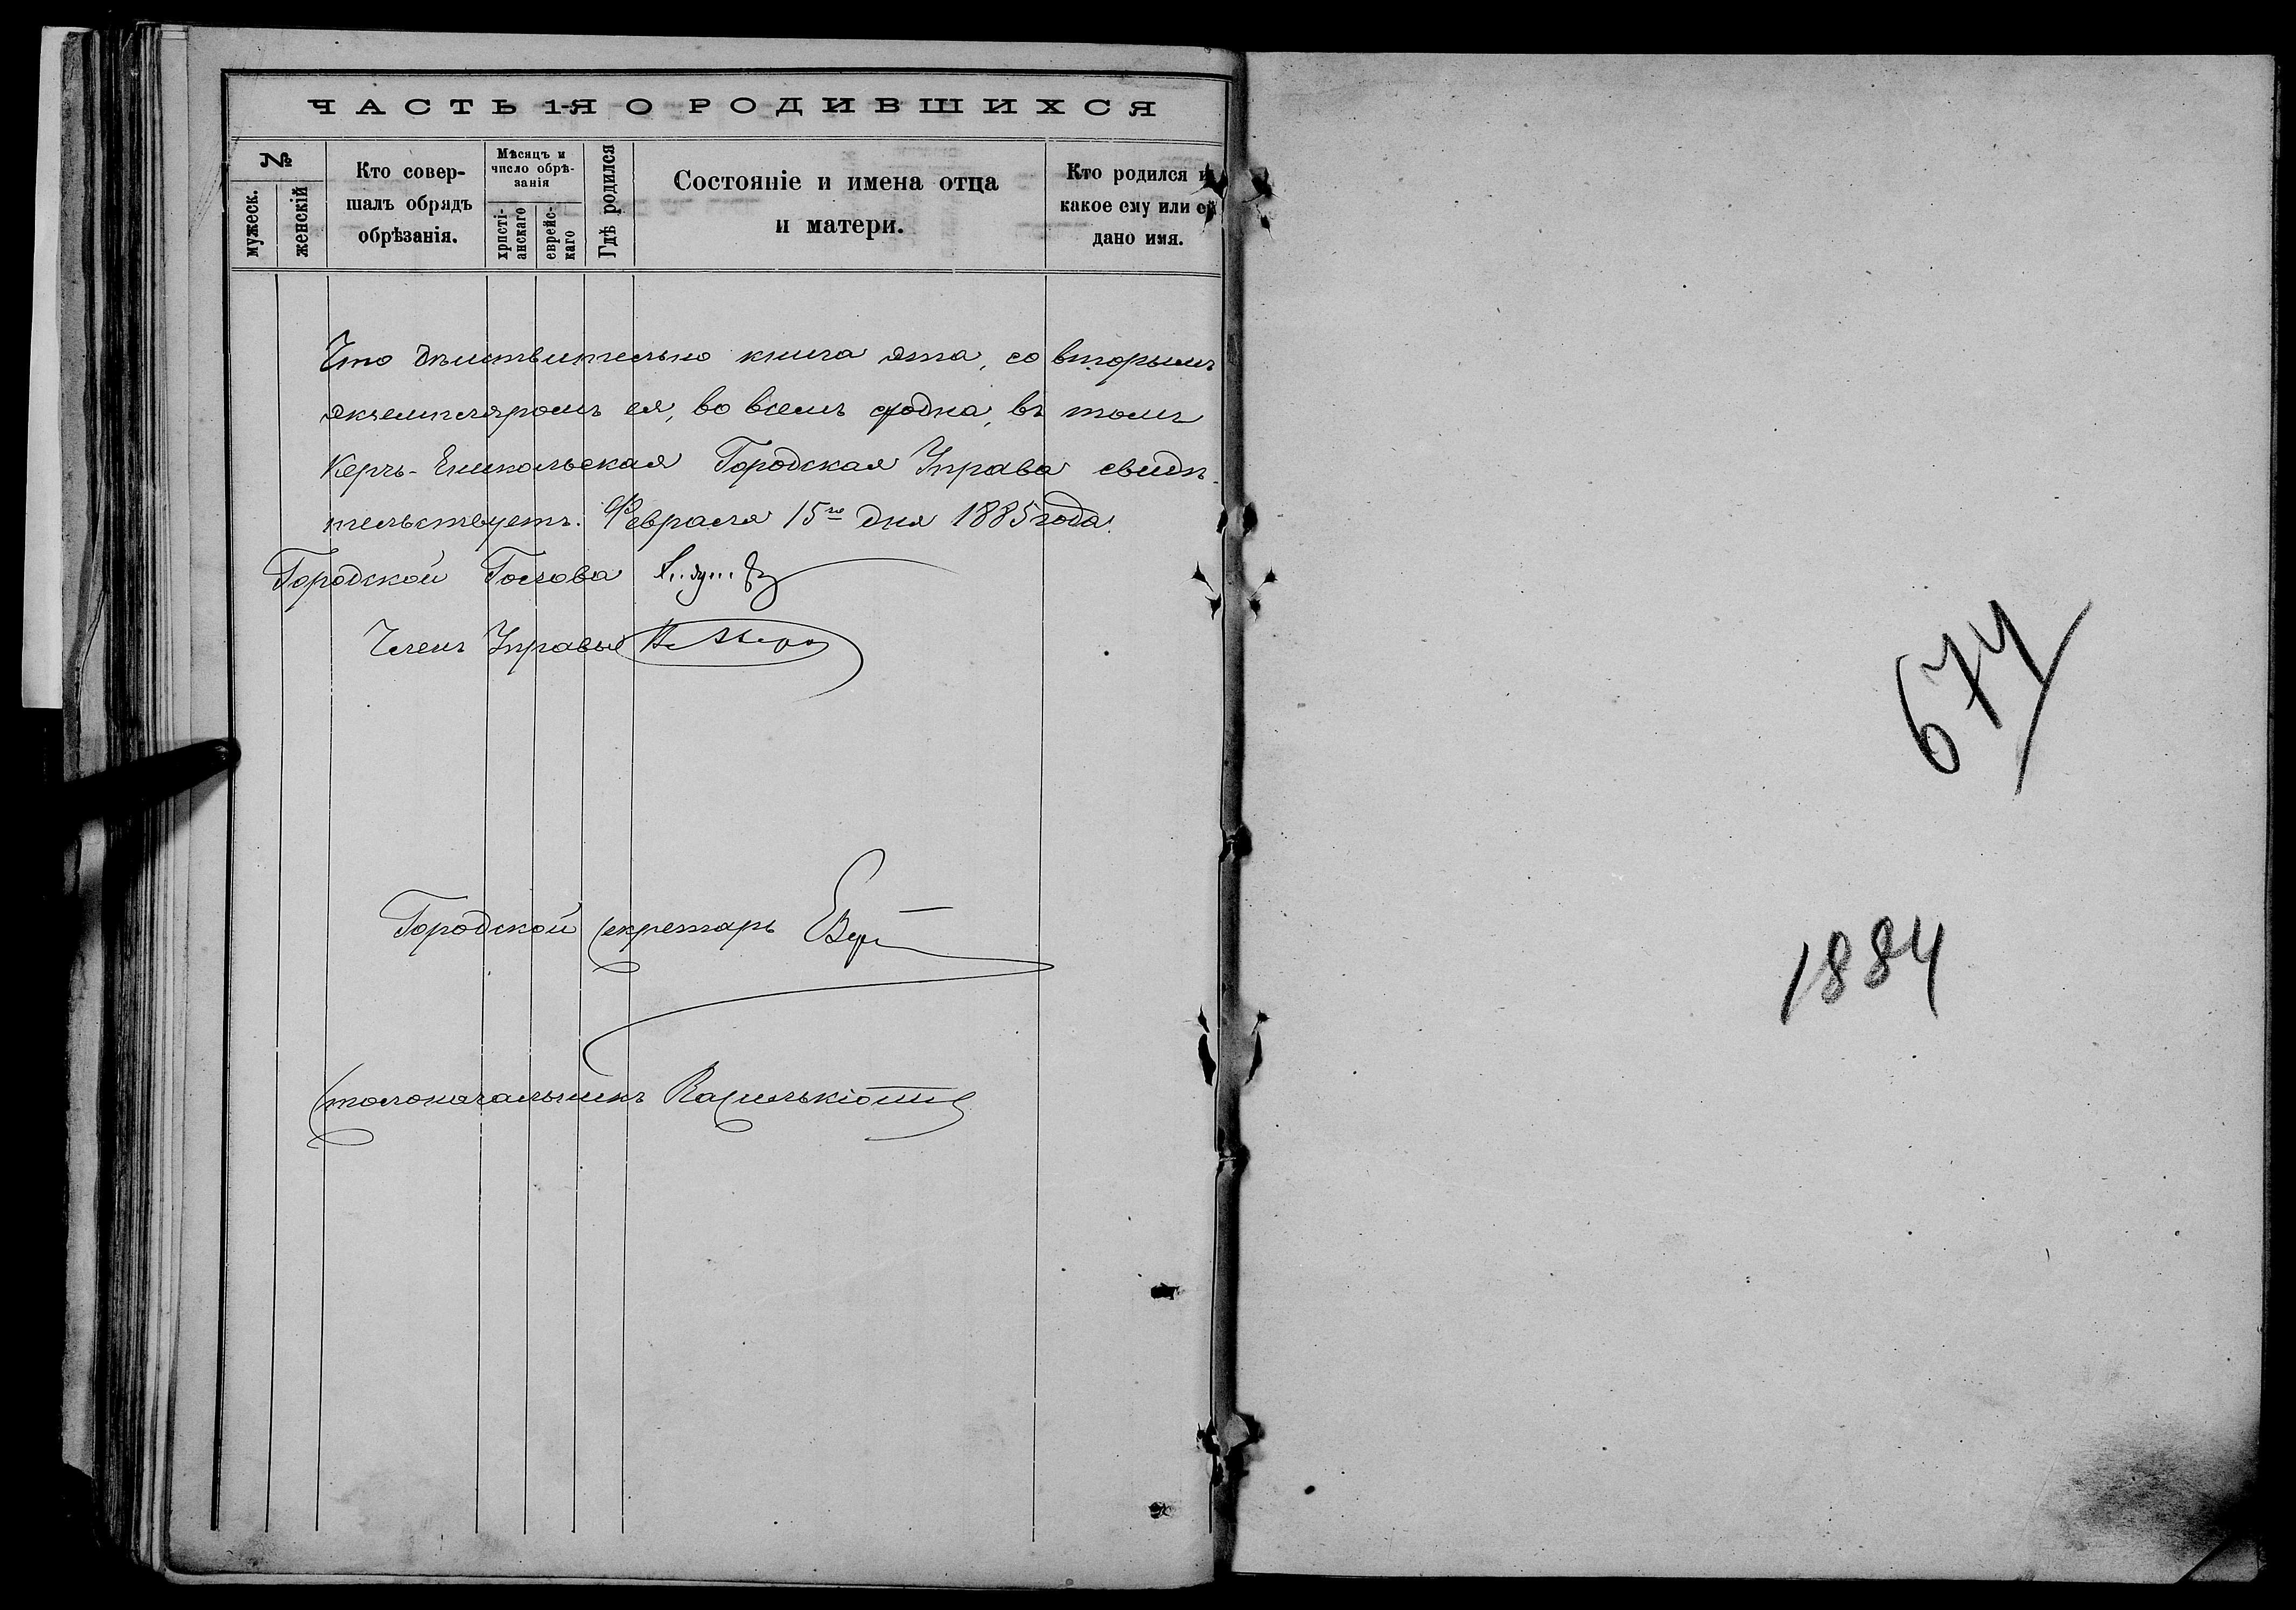 ЧАСТЬ 1-Я О РОДИВШИХСЯ
№
мужеск.
женскій
Кто совер-
шалъ обрядъ
обрѣзанія.
Мѣсяцъ и
число обрѣ-
занія
христі-
анскаго
еврейс-
каго
Гдѣ родился
Состояніе и имена отца
и матери.
Кто родился и
какое ему или ей
дано имя.
Что дѣйствительно книга эта, со вторымъ
экземпляромъ ея, во всемъ сходна, въ томъ
Керчь-Еникольская Городская Управа свидѣ-
тельствуетъ. Февраля 15го дня 1885 года.
Городской Голова
Членъ Управы
Городской Секретарь
Столоначальникъ
674
1884